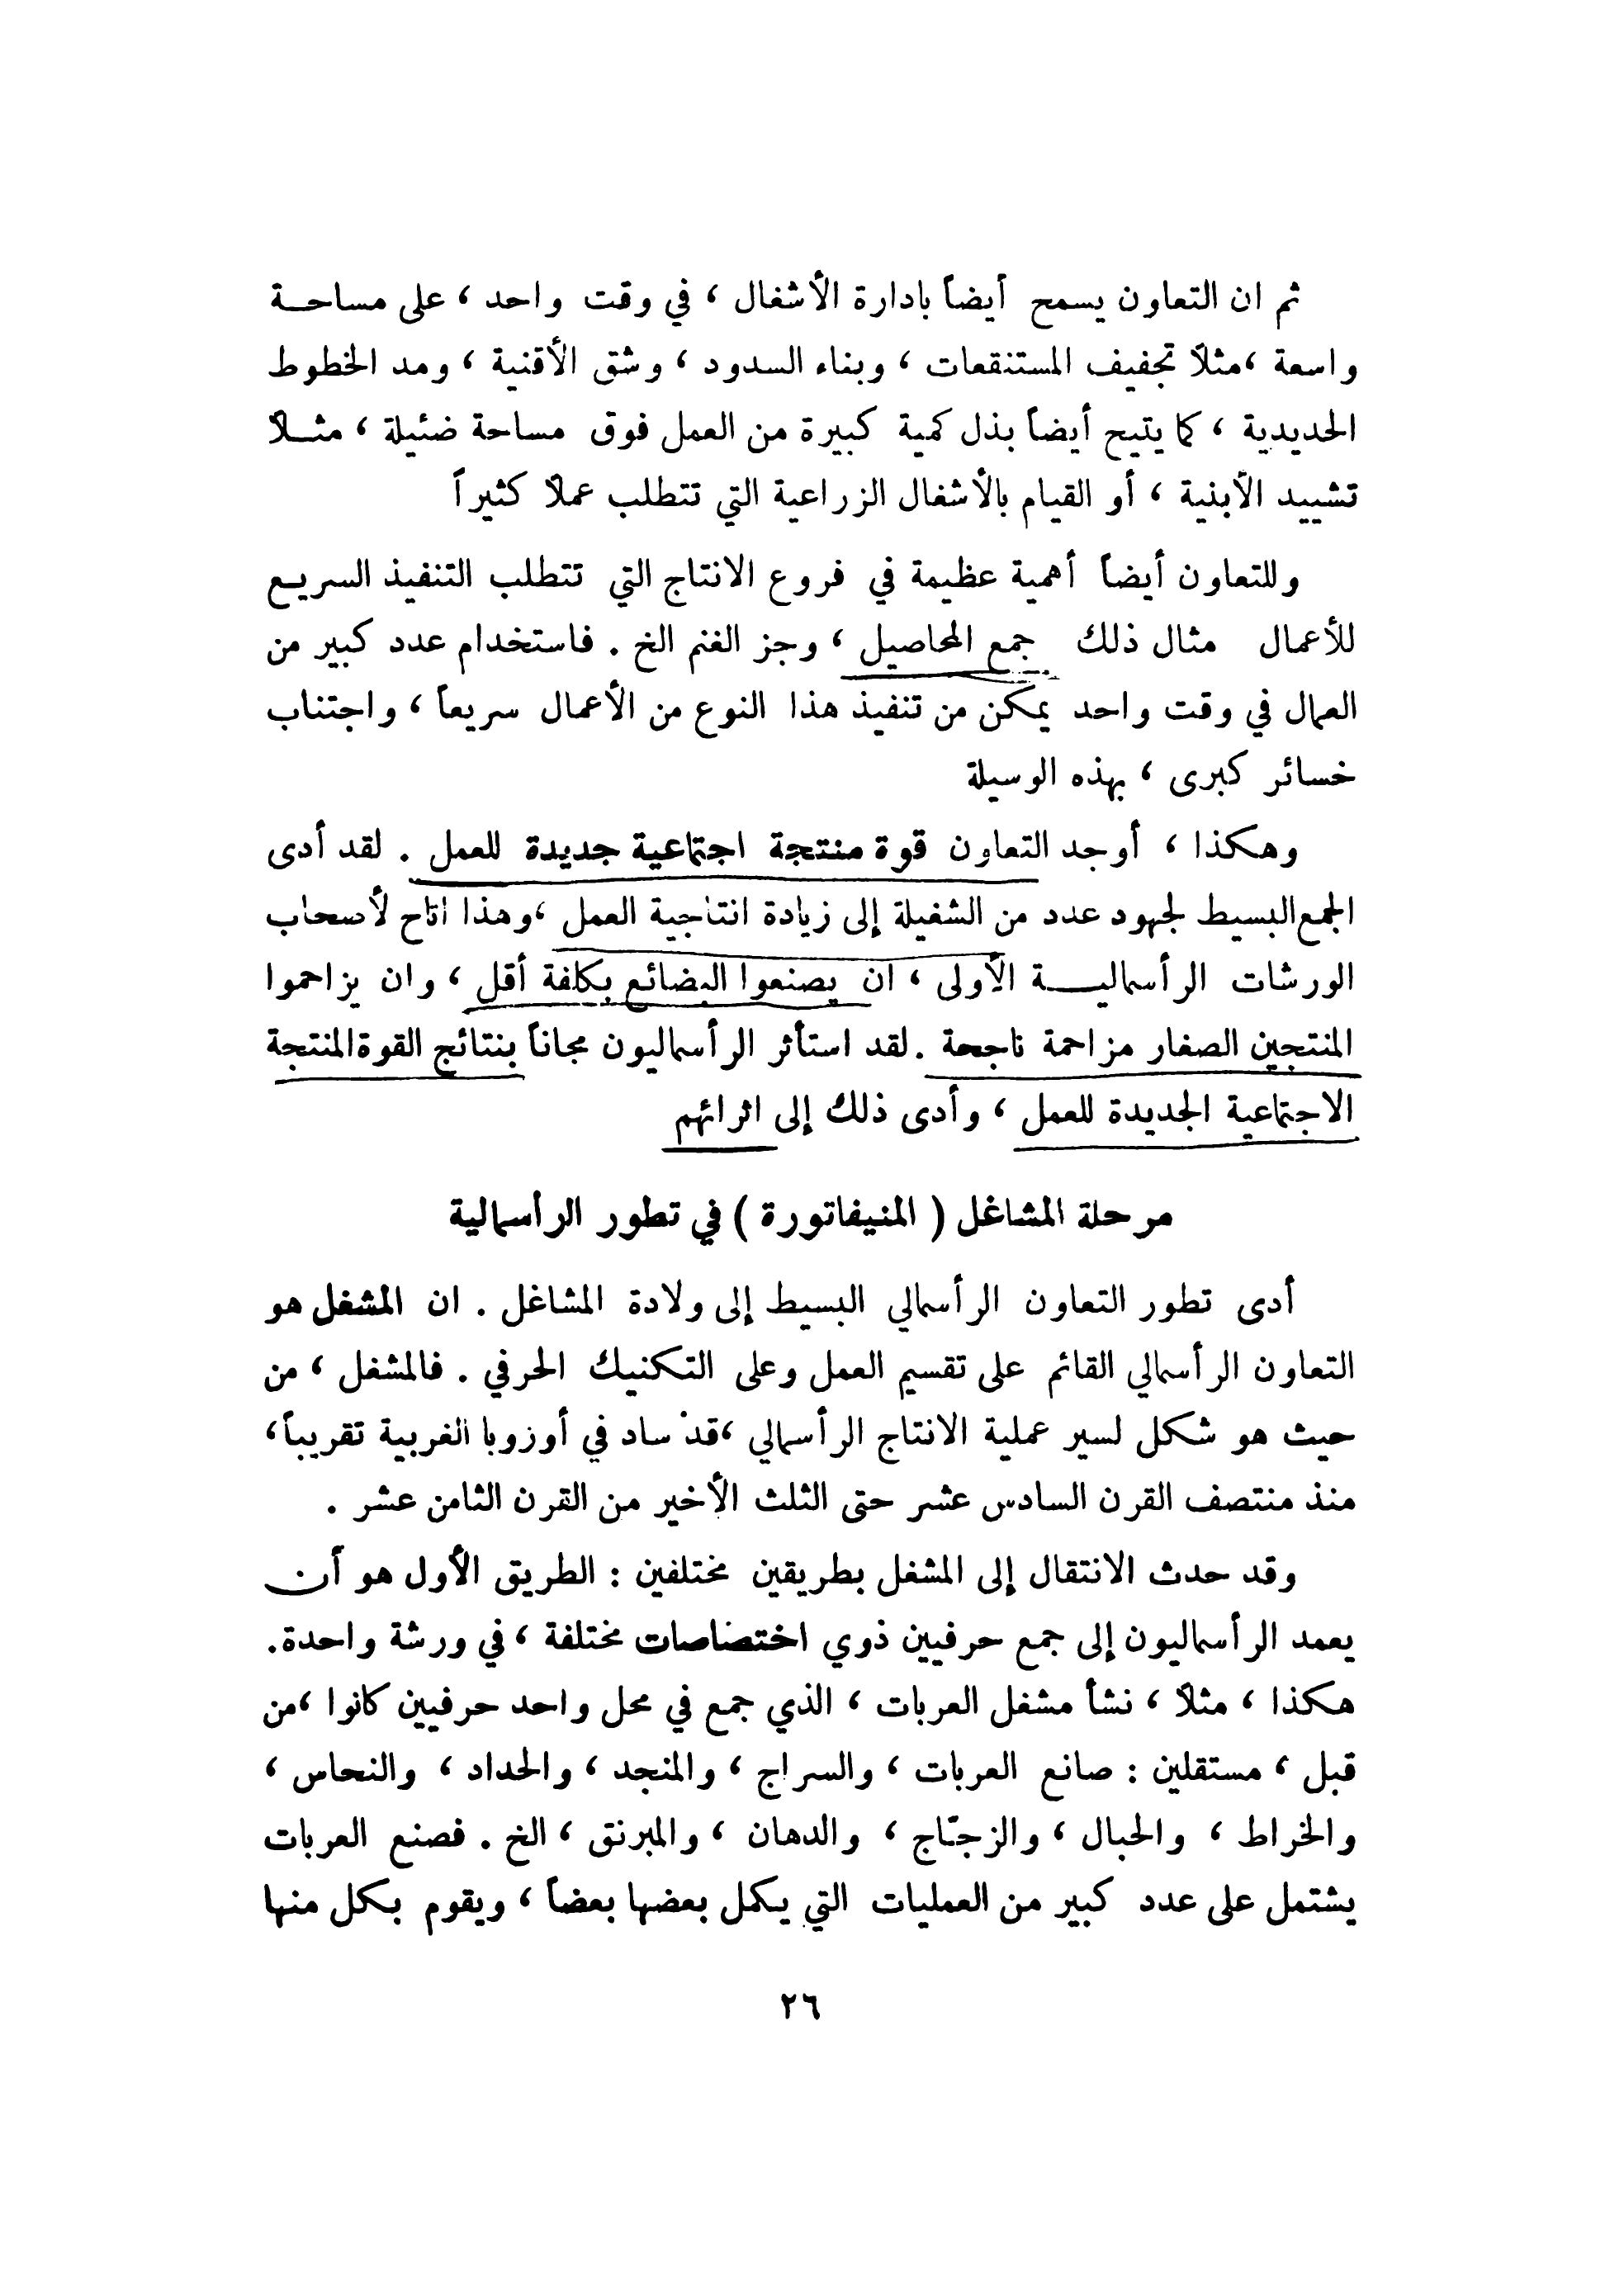 ثم ان التعاون يسمح أيضاً بادارة الأشغال ، في وقت واحد ، على مساحــة
واسعة ،مثلاً تجفيف المستنقعات ، وبناء السدود ، وشق الأقنية ، ومد الخطوط
الحديدية ، كما يتيح أيضاً بذل كمية كبيرة من العمل فوق مساحة ضئيلة ، مثــلاً
تشييد الأبنية ، أو القيام بالأشغال الزراعية التي تتطلب عملاً كثيراً
وللتعاون أيضاً أهمية عظيمة في فروع الانتاج التي تتطلب التنفيذ السريـع
للأعمال مثال ذلك جمع المحاصيل ، وجز الغنم الخ . فاستخدام عدد كبير من
العمال في وقت واحد يمكن من تنفيذ هذا النوع من الأعمال سريعاً ، واجتناب
خسائر كبرى ، بهذه الوسيلة
وهكذا ، أوجد التعاون قوة منتجة اجتماعية جديدة للعمل . لقد أدى
الجمع البسيط لجهود عدد من الشغيلة إلى زيادة انتاجية العمل ،وهذا اتاح لأصحاب
الورشات الرأسماليـــة الأولى ، ان يصنعوا البضائع بكلفة أقل ، وان يزاحموا
المنتجين الصغار مزاحمة ناجحة .لقد استأثر الرأسماليون مجاناً بنتائج القوة المنتجة
الاجتماعية الجديدة للعمل ، وأدى ذلك إلى اثرائهم
مرحلة المشاغل ( المنيفاتورة ) في تطور الرأسمالية
أدى تطور التعاون الرأسمالي البسيط إلى ولادة المشاغل . ان المشغل هو
التعاون الرأسمالي القائم على تقسيم العمل وعلى التكنيك الحرفي . فالمشغل ، من
حيث هو شكل لسير عملية الانتاج الرأسمالي ،قد ساد في أوزوبا الغربية تقريباً،
منذ منتصف القرن السادس عشر حتى الثلث الأخير من القرن الثامن عشر .
وقد حدث الانتقال إلى المشغل بطريقين مختلفين : الطريق الأول هو أن
يعمد الرأسماليون إلى جمع حرفيين ذوي اختصاصات مختلفة ، في ورشة واحدة.
هكذا ، مثلاً ، نشأ مشغل العربات ، الذي جمع في محل واحد حرفيين كانوا ،من
قبل ، مستقلين : صانع العربات ، والسراج ، والمنجد ، والحداد ، والنحاس ،
والخراط ، والحبال ، والزجّاج ، والدهان ، والمبرنق ، الخ . فصنع العربات
يشتمل على عدد كبير من العمليات التي يكمل بعضها بعضاً ، ويقوم بكل منها
٢٦